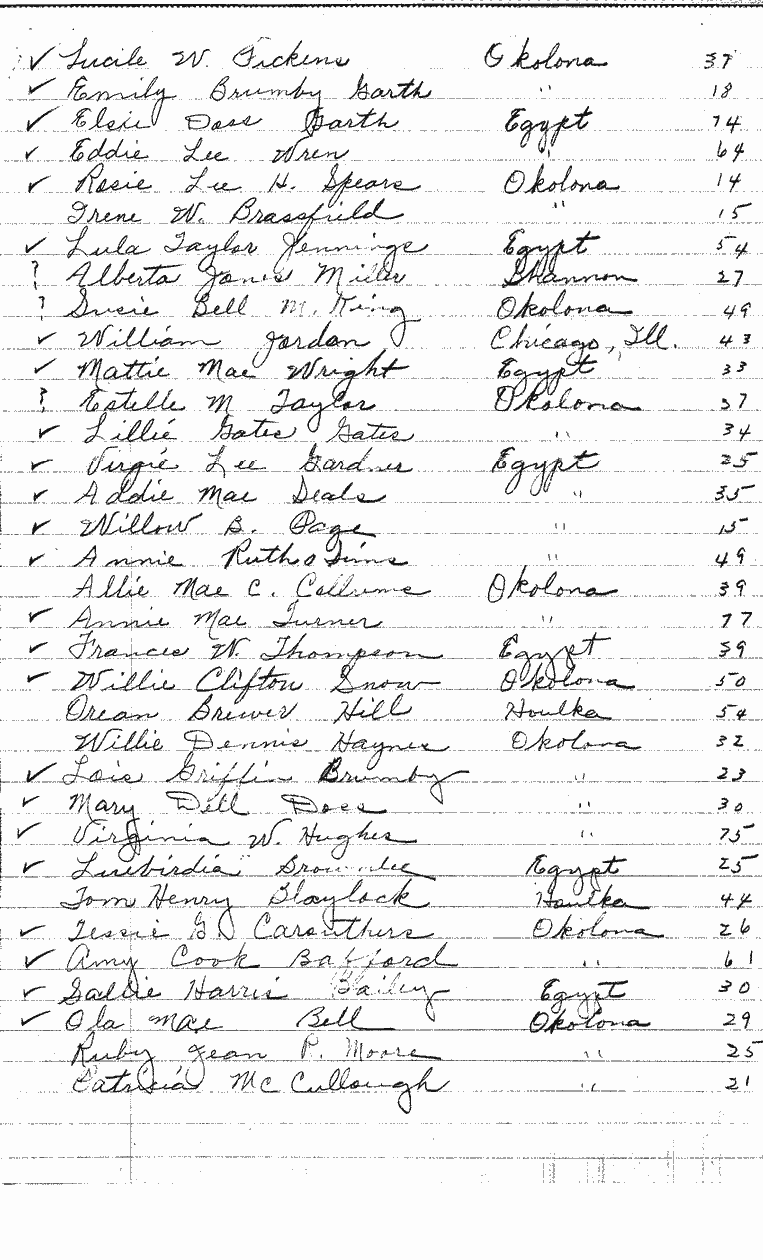 ✓ Lucile W. Pickens Okolona 37
✓ Emily Brumby Garth " 18
✓ Elsie Doss Garth Egypt 74
✓ Eddie Lee Wren " 64
✓ Rosie Lee H. Spears Okolona 14
Irene W. Brassfield " 15
✓ Lula Taylor Jennings Egypt 54
? Alberta Jones Miller Shannon 27
? Susie Bell M. King Okolona 49
✓ William Jordan Chicago, Ill. 43
✓ Mattie Mae Wright Egypt 33
? Estelle M Taylor Okolona 37
✓ Lillie Gates Gates " 34
✓ Virgie Lee Gardner Egypt 25
✓ Addie Mae Seals " 35
✓ Willow B. Page " 15
✓ Annie Ruth Sims " 49
Allie Mae C. Collums Okolona 39
✓ Annie Mae Turner " 77
✓ Frances W. Thompson Egypt 59
✓ Willie Clifton Snow Okolona 50
Orean Brewer Hill Houlka 54
Willie Dennis Haynes Okolona 32
✓ Lois Griffin Brumby " 23
✓ Mary Dell Doss " 30
✓ Virginia W. Hughes " 75
✓ Luebirdia Brownlee Egypt 25
Tom Henry Blaylock Houlka 44
✓ Tessie G. Caruthers Okolona 26
✓ Amy Cook Bafford " 61
✓ Sallie Harris Bailey Egypt 30
✓ Ola Mae Bell Okolona 29
Ruby Jean P. Moore " 25
Patricia McCullough " 21